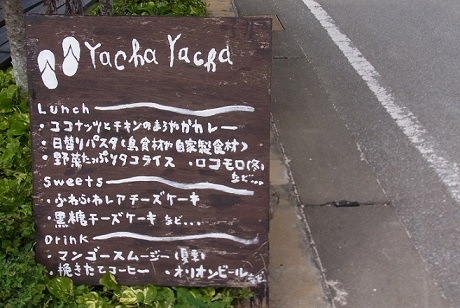 Yacha Yacha
Lunch
・ココナッツとチキンのまろやかカレー
・日替りパスタ(島食材や自家製食材)
・野菜たっぷりタコライス ・ロコモロ(冬)
など...
Sweets
・ふわふわレアチーズケーキ
・黒糖チーズケーキ など...
Drink
・マンゴースムージー(夏季)
・挽きたてコーヒー ・オリオンビール など